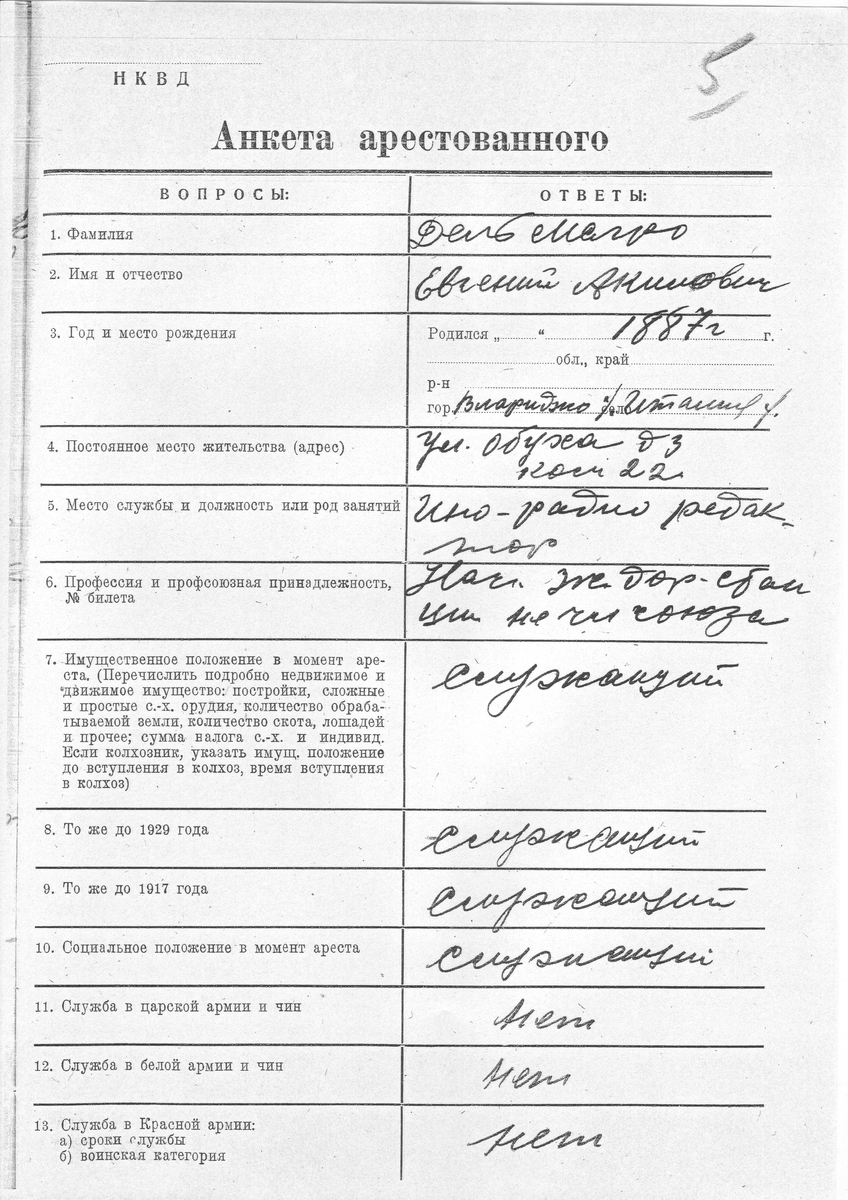 5
НКВД
Анкета арестованного
ВОПРОСЫ: ОТВЕТЫ:
1. Фамилия Дель Магро
2. Имя и отчество Евгений Акимович
3. Год и место рождения Родился „ “ 1887 г г.
обл., край
р-н
гор. село Италия
4. Постоянное место жительства (адрес) ул. Обуха д 3
ком 22
5. Место службы и должность или род занятий Ино-радио редак-
тор
6. Профессия и профсоюзная принадлежность, Нач. жел дор-стан
№ билета ции не чл союза
7. Имущественное положение в момент аре- служащий
ста. (Перечислить подробно недвижимое и
движимое имущество: постройки, сложные
и простые с.-х. орудия, количество обраба-
тываемой земли, количество скота, лошадей
и прочее; сумма налога с.-х. и индивид.
Если колхозник, указать имущ. положение
до вступления в колхоз, время вступления
в колхоз)
8. То же до 1929 года служащий
9. То же до 1917 года служащий
10. Социальное положение в момент ареста служащий
11. Служба в царской армии и чин нет
12. Служба в белой армии и чин нет
13. Служба в Красной армии:
а) сроки службы нет
б) воинская категория